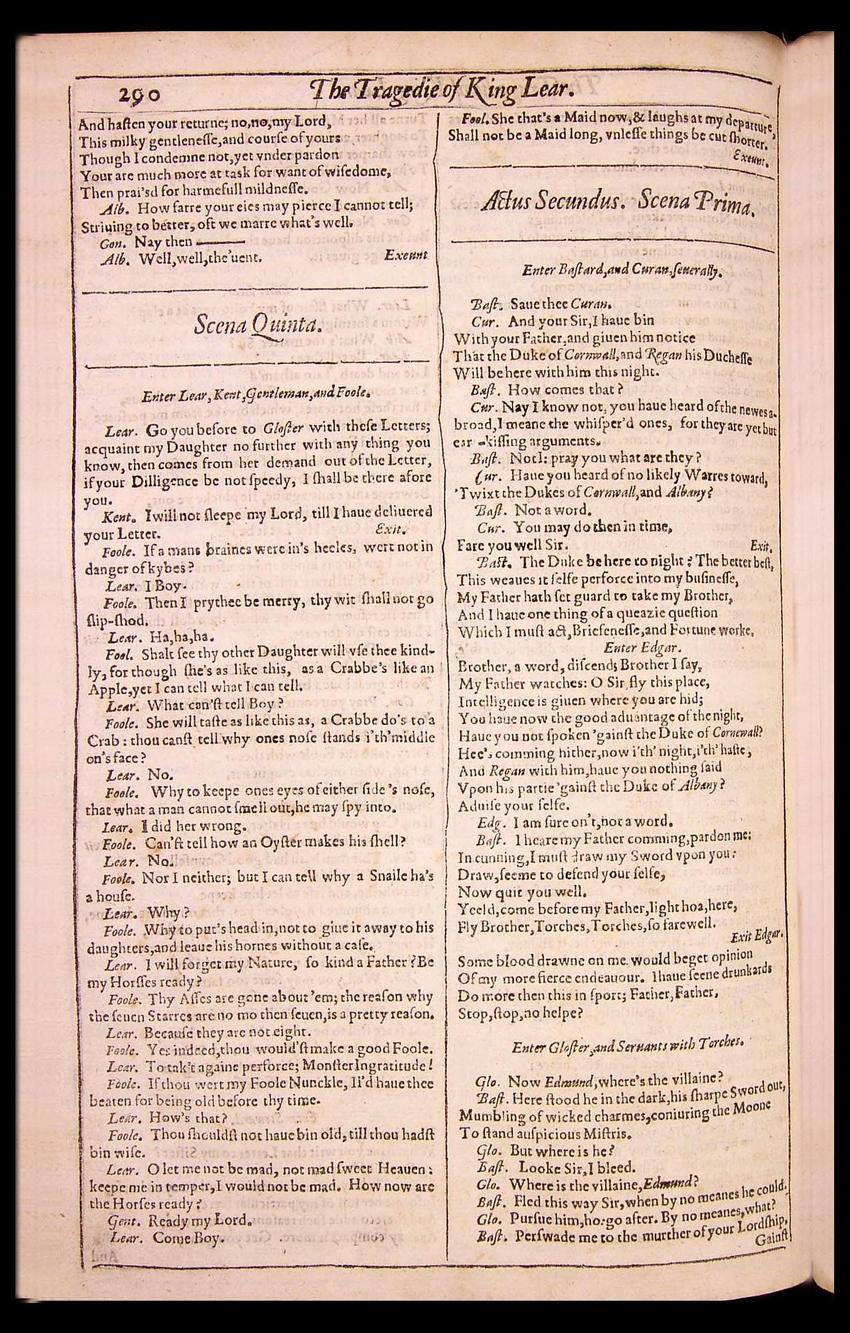 290
The Tragedie of King Lear.
And hasten your returne; no,no,my Lord,
This milky gentlenesse,and course of yours
Though I condemne not,yet vnder pardon
Your are much more at task for want of wisedome,
Then prai'sd for harmefull mildnesse.
Alb. How farre your eies may pierce I cannot tell;
Striuing to better, oft we marre what's well.
Gon. Nay then ———
Alb. Well,well,the'uent. Exeunt
Scena Quinta.
Enter Lear, Kent,Gentleman,and Foole.
Lear. Go you before to Gloster with these Letters;
acquaint my Daughter no further with any thing you
know, then comes from her demand out of the Letter,
if your Dilligence be not speedy, I shall be there afore
you.
Kent. I will not sleepe my Lord, till I haue deliuered
your Letter. Exit.
Foole. If a mans braines were in's heeles, wert not in
danger of kybes?
Lear. I Boy.
Foole. Then I prythee be merry, thy wit shall not go
slip-shod.
Lear. Ha,ha,ha.
Fool. Shalt see thy other Daughter will vse thee kind-
ly, for though she's as like this, as a Crabbe's like an
Apple,yet I can tell what I can tell.
Lear. What can'st tell Boy?
Foole. She will taste as like this as, a Crabbe do's to a
Crab: thou canst tell why ones nose stands i'th'middle
on's face?
Lear. No.
Foole. Why to keepe ones eyes of either side 's nose,
that what a man cannot smell out,he may spy into.
Lear. I did her wrong.
Foole. Can'st tell how an Oyster makes his shell?
Lear. No.
Foole. Nor I neither; but I can tell why a Snaile ha's
a house.
Lear. Why?
Foole. Why to put's head in,not to giue it away to his
daughters,and leaue his hornes without a case.
Lear. I will forget my Nature, so kind a Father? Be
my Horsses ready?
Foole. Thy Asses are gone about 'em; the reason why
the seuen Starres are no mo then seuen,is a pretty reason.
Lear. Because they are not eight.
Foole. Yes indeed,thou would'st make a good Foole.
Lear. To tak't againe perforce; Monster Ingratitude!
Foole. If thou wert my Foole Nunckle, Il'd haue thee
beaten for being old before thy time.
Lear. How's that?
Foole. Thou shouldst not haue bin old, till thou hadst
bin wise.
Lear. O let me not be mad, not mad sweet Heauen:
keepe me in temper,I would not be mad. How now are
the Horses ready?
Gent. Ready my Lord.
Lear. Come Boy.
Fool. She that's a Maid now,& laughs at my departure,
Shall not be a Maid long, vnlesse things be cut shorter.
Exeunt.
Actus Secundus. Scena Prima.
Enter Bastard,and Curan,seuerally.
Bast. Saue thee Curan.
Cur. And your Sir,I haue bin
With your Father,and giuen him notice
That the Duke of Cornwall,and Regan his Duchesse
Will be here with him this night.
Bast. How comes that?
Cur. Nay I know not, you haue heard of the newes a-
broad,I meane the whisper'd ones, for they are yet but
ear -kissing arguments.
Bast. Not I: pray you what are they?
Cur. Haue you heard of no likely Warres toward,
'Twixt the Dukes of Cornwall,and Albany?
Bast. Not a word.
Cur. You may do then in time,
Fare you well Sir. Exit.
Bast. The Duke be here to night? The better best,
This weaues it selfe perforce into my businesse,
My Father hath set guard to take my Brother,
And I haue one thing of a queazie question
Which I must act,Briefenesse,and Fortune worke.
Enter Edgar.
Brother, a word, discend; Brother I say,
My Father watches: O Sir, fly this place,
Intelligence is giuen where you are hid;
You haue now the good aduantage of the night,
Haue you not spoken 'gainst the Duke of Cornewall?
Hee's comming hither,now i'th' night,i'th' haste,
And Regan with him,haue you nothing said
Vpon his partie 'gainst the Duke of Albany?
Aduise your selfe.
Edg. I am sure on't,not a word.
Bast. I heare my Father comming,pardon me:
In cunning,I must draw my Sword vpon you:
Draw,seeme to defend your selfe,
Now quit you well.
Yeeld,come before my Father,light hoa,here,
Fly Brother,Torches,Torches,so farewell.
Exit Edgar.
Some blood drawne on me, would beget opinion
Of my more fierce endeauour. I haue seene drunkards
Do more then this in sport; Father,Father,
Stop,stop,no helpe?
Enter Gloster,and Seruants with Torches.
Glo. Now Edmund,where's the villaine?
Bast. Here stood he in the dark,his sharpe Sword out,
Mumbling of wicked charmes,coniuring the Moone
To stand auspicious Mistris.
Glo. But where is he?
Bast. Looke Sir,I bleed.
Glo. Where is the villaine,Edmund?
Bast. Fled this way Sir,when by no meanes he could.
Glo. Pursue him,ho:go after. By no meanes,what?
Bast. Perswade me to the murther of your Lordship,
Gainst